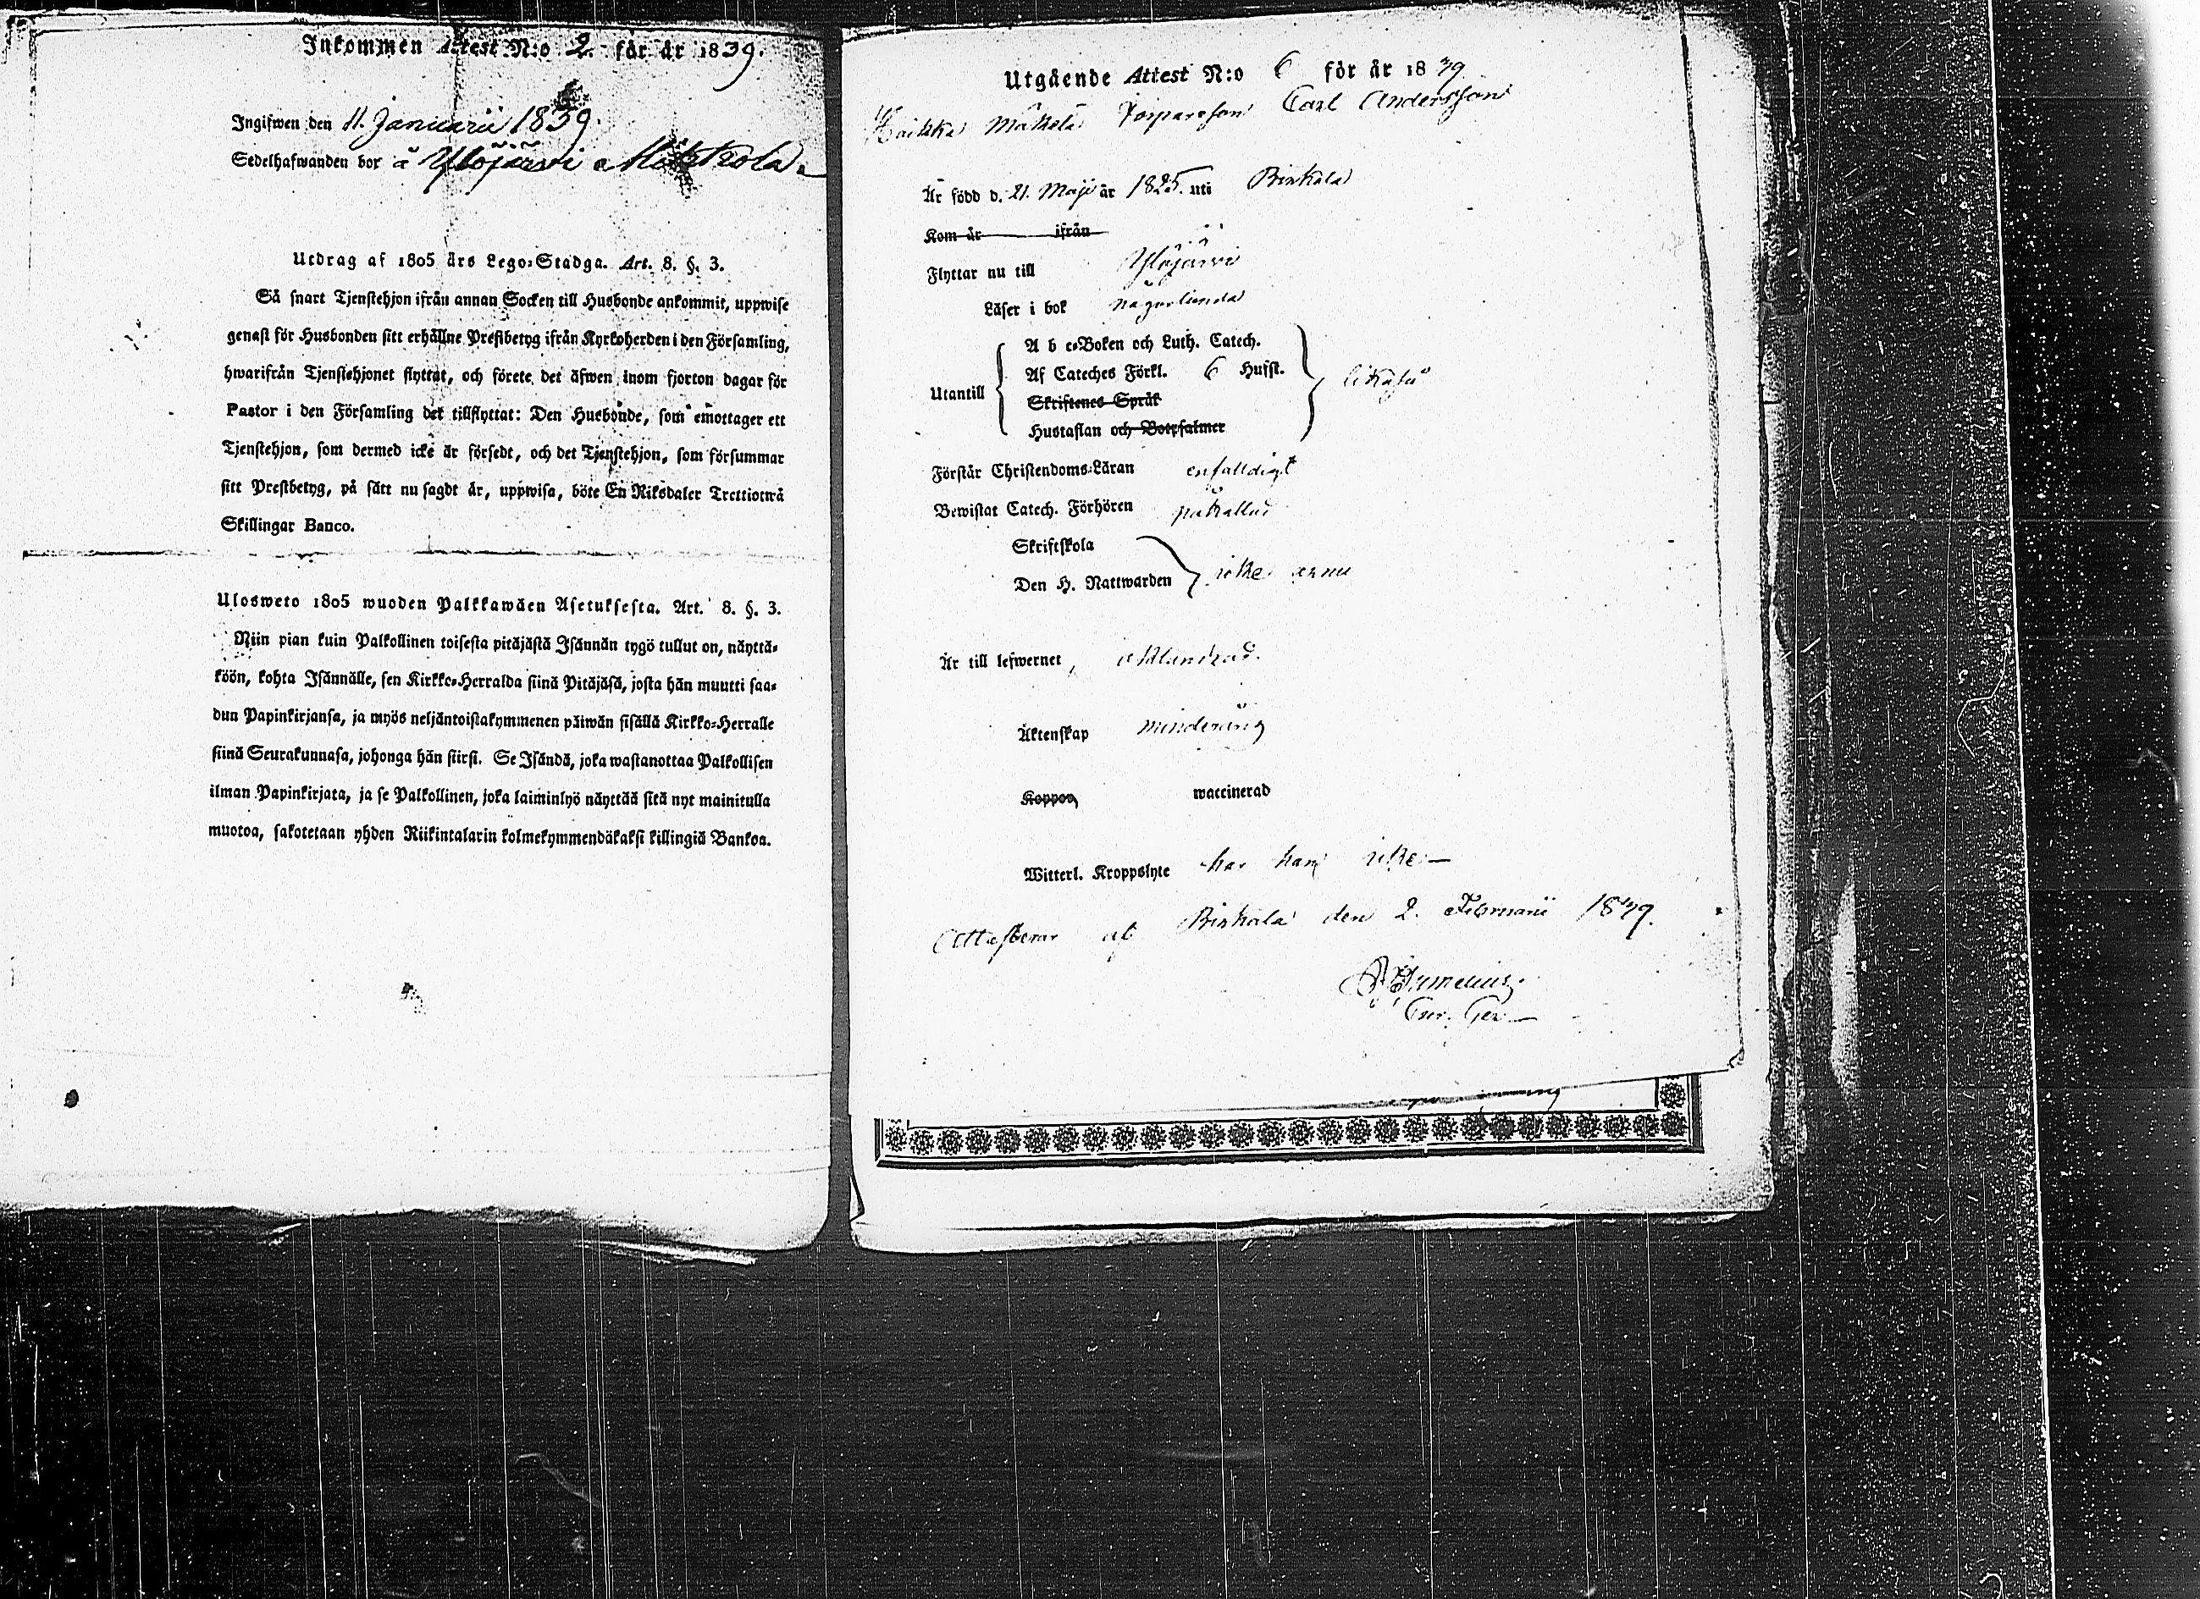 Inkommen Attest N:o 2. för år 1839.
Ingifwen den 11. Januarii 1839.
Sedelhafwanden bor å Ylöjärvi
Utdrag af 1805 års Lego-Stadga. Art. 8. §. 3.
Så snart Tjenstehjon ifrån annan Socken till Husbonde ankommit, uppwise
genast för Husbonden sitt erhållne Prestbetyg ifrån Kyrkoherden i den Församling,
hwarifrån Tjenstehjonet flyttat, och förete det äfwen inom fjorton dagar för
Pastor i den Församling det tillflyttat: Den Husbonde, som emottager ett
Tjenstehjon, som dermed icke är försedt, och det Tjenstehjon, som försummar
sitt Prestbetyg, på sätt nu sagdt är, uppwisa, böte En Riksdaler Trettiotwå
Skillingar Banco.
Ulosweto 1805 wuoden Palkkawäen Asetuksesta. Art. 8. §. 3.
Niin pian kuin Palkollinen toisesta pitäjästä Isännän tygö tullut on, näyttä-
köön, kohta Isännälle, sen Kirkko-Herralda siinä Pitäjäsä, josta hän muutti saa-
dun Papinkirjansa, ja myös neljäntoistakymmenen päiwän sisällä Kirkko-Herralle
siinä Seurakunnasa, johonga hän siirsi. Se Isändä, joka wastanottaa Palkollisen
ilman Papinkirjata, ja se Palkollinen, joka laiminlyö näyttää sitä nyt mainitulla
muotoa, sakotetaan yhden Riikintalarin kolmekymmendäkaksi killingiä Bankoa.
Utgående Attest N:o 6 för år 1839
Mäkelä Torpareson Carl Andersson
Är född d. 21. Maji år 1825. uti Birkala
Kom år ifrån
Flyttar nu till Ylöjärvi
Läser i bok någorlunda
A b c-Boken och Luth. Catech.
Af Cateches Förkl. 6 Hufst.
Utantill likaså
Skriftenes Språk
Hustaflan och Botpsalmer
Förstår Christendoms-Läran enfaldigt
Bewistat Catech. Förhören påkallad
Skriftskola
Den H. Nattwarden icke ännu
Är till lefwernet oklandrad.
Äktenskap minderårig
Koppor, waccinerad
Witterl. Kroppslyte har han icke —
Attesterar af Birkala den 2. Februarii 1839.